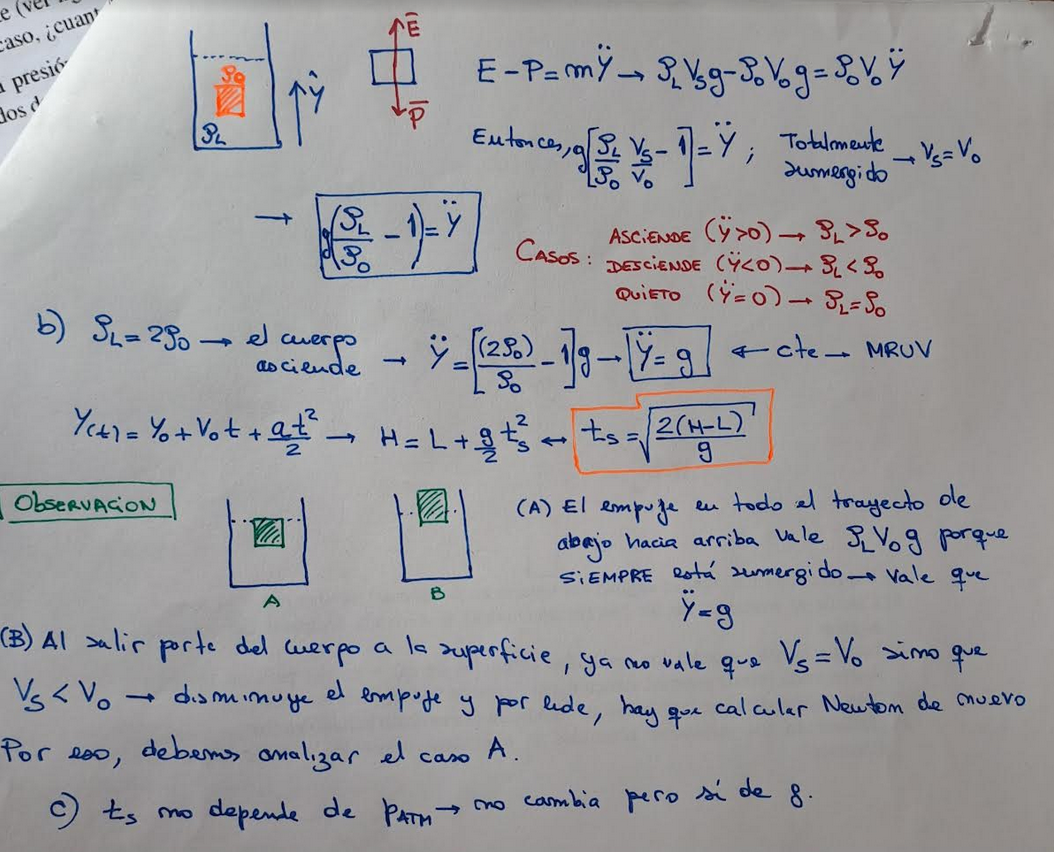 e (ver
caso, ¿cuan
presió
dos d
E
P
ρ₀
ρL
ŷ
E - P = mŸ → ρL Vs g - ρ₀ V₀ g = ρ₀ V₀ Ÿ
Entonces, g[ρL/ρ₀ Vs/V₀ - 1] = Ÿ ; Totalmente sumergido → Vs = V₀
→ g(ρL/ρ₀ - 1) = Ÿ
CASOS: ASCIENDE (Ÿ>0) → ρL > ρ₀
DESCIENDE (Ÿ<0) → ρL < ρ₀
QUIETO (Ÿ=0) → ρL = ρ₀
b) ρL = 2ρ₀ → el cuerpo asciende → Ÿ = [(2ρ₀)/ρ₀ - 1]g → Ÿ = g ← cte → MRUV
Y(t) = Y₀ + V₀t + at²/2 → H = L + g/2 ts² ↔ ts = √(2(H-L)/g)
OBSERVACION
A
B
(A) El empuje en todo el trayecto de
abajo hacia arriba vale ρL V₀ g porque
SIEMPRE está sumergido → vale que
Ÿ = g
(B) Al salir parte del cuerpo a la superficie, ya no vale que Vs = V₀ sino que
Vs < V₀ → disminuye el empuje y por ende, hay que calcular Newton de nuevo
Por eso, debemos analizar el caso A.
c) ts no depende de PATM → no cambia pero sí de g.